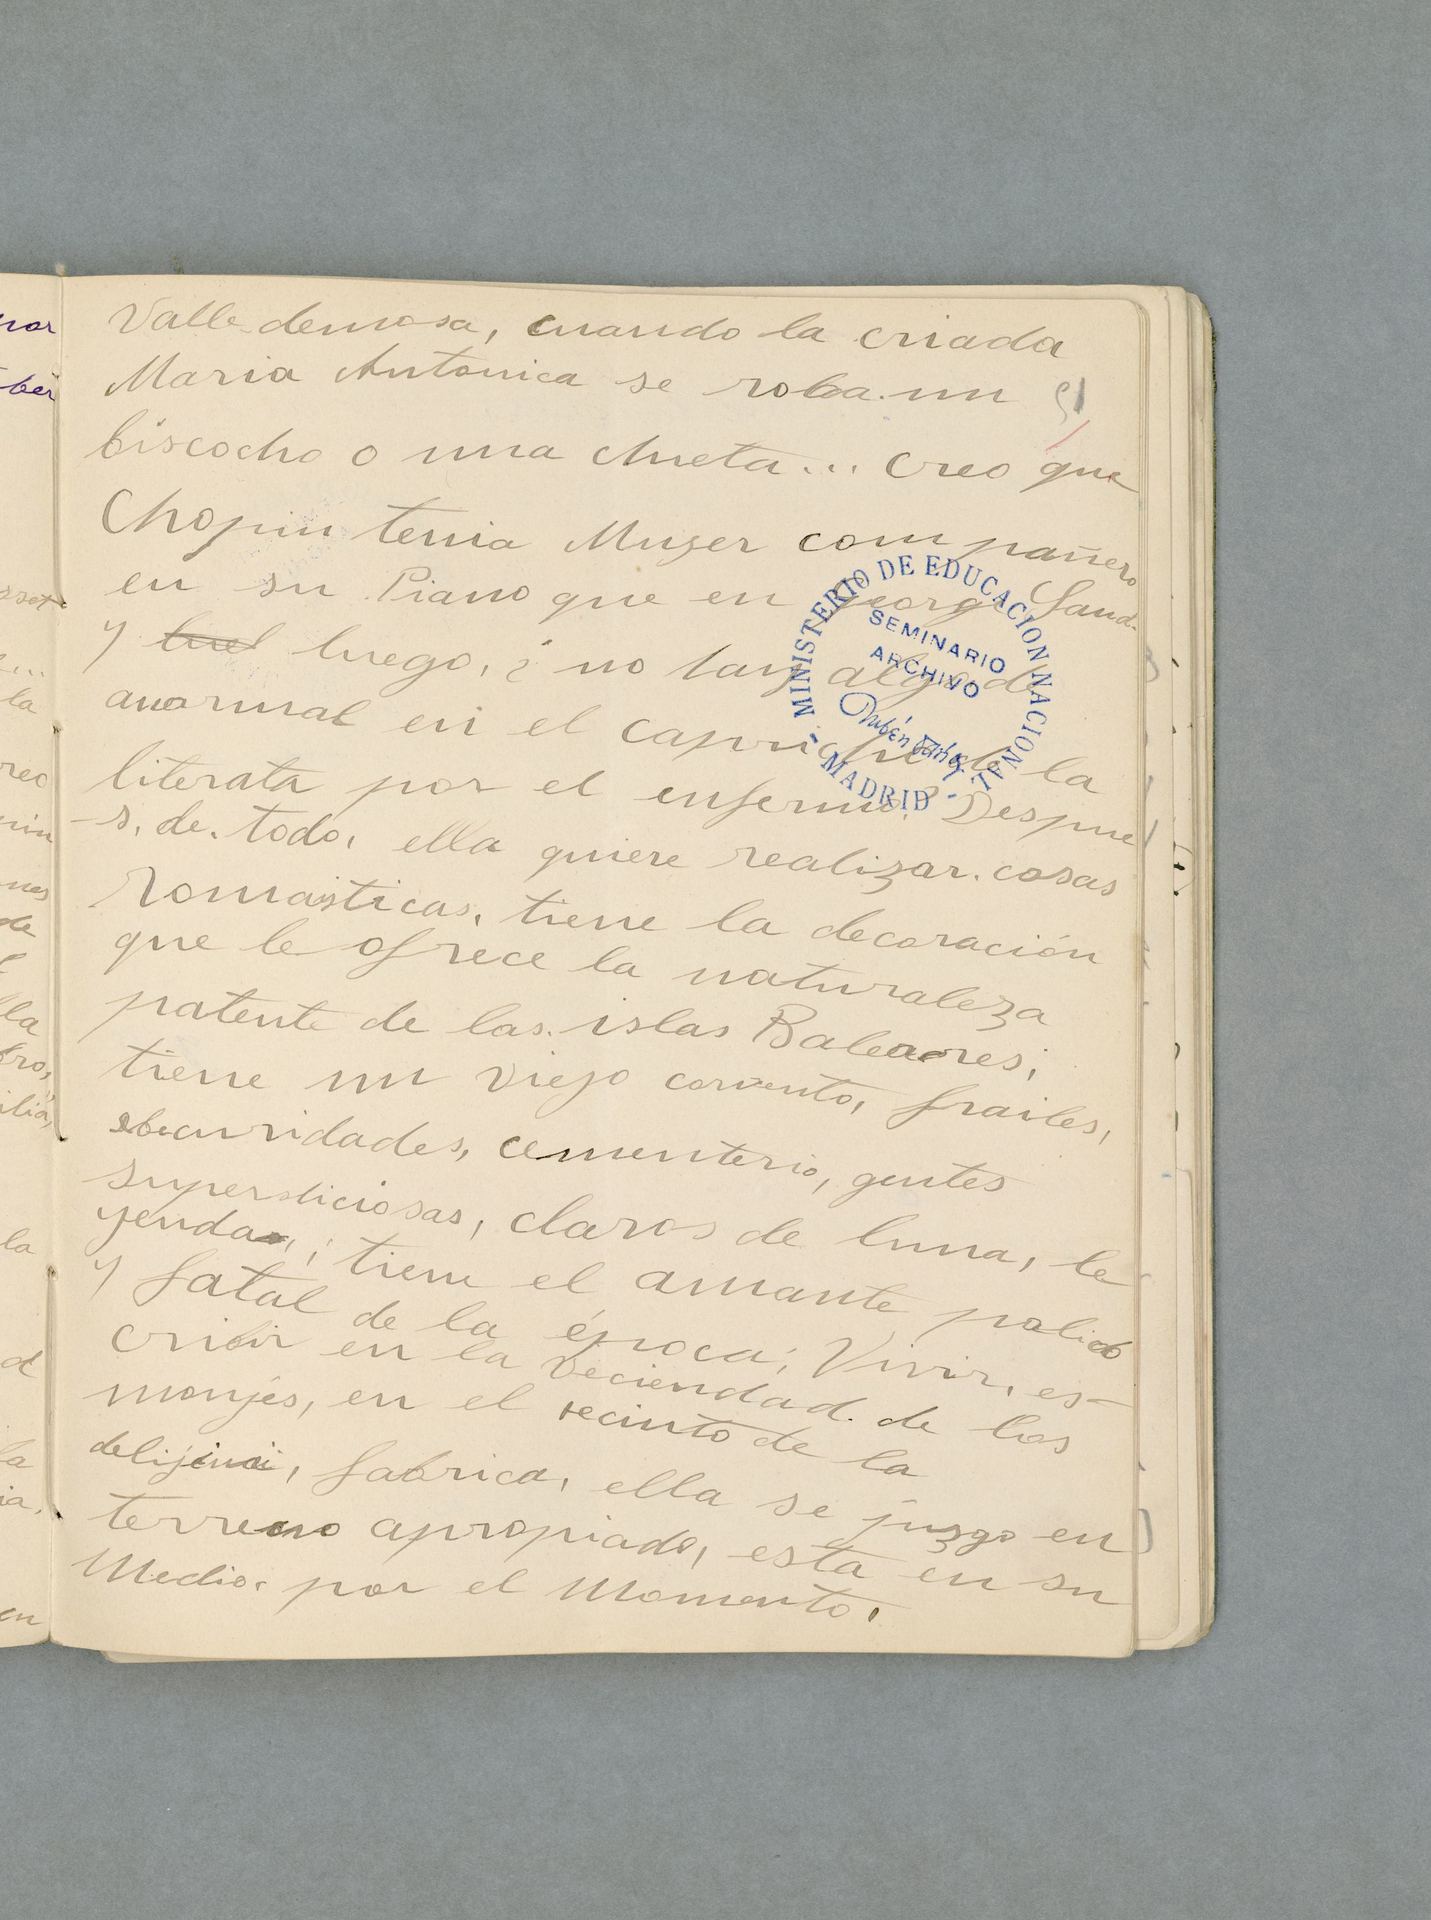 Valledemosa, cuando la criada
Maria Antonica se roba un
biscocho o una chueta... creo que
Chopin tenia Muger compañero
en su Piano que en georg Sand.
y luego, ¿ no hay algo de
anormal en el capricho de la
literata por el enfermo? Despue
-s, de. todo, ella quiere realizar. cosas
Romasticas, tiene la decoración
que le ofrece la naturaleza
patente de las. islas Baleares;
tiene un viejo convento, frailes,
obcuridades, cementerio, gentes
supersticiosas, claros de luna, le
yendas,; tiene el amante palido
y fatal de la época; Vivir, es-
cribir en la veciendad. de los
monjes, en el recinto de la
fabrica, ella se juzgo en
terreno apropiado, esta en su
Medio. por el Momento.
51
MINISTERIO DE EDUCACION NACIONAL - MADRID -
SEMINARIO
ARCHIVO
Rubén Darío